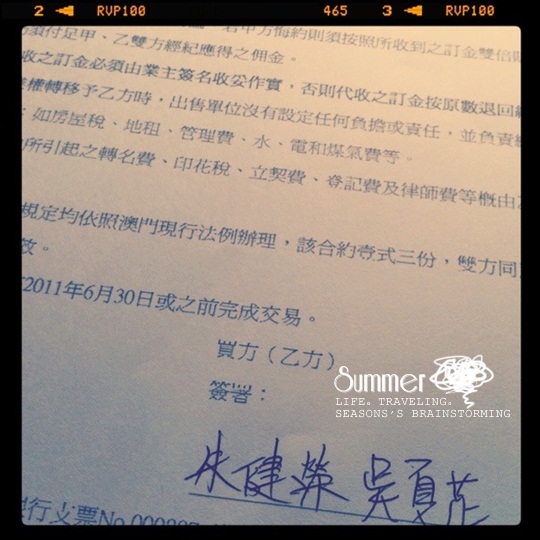 2 RVP100 465 3 RVP100
須付足甲、乙雙方經紀應得之佣金。
收之訂金必須由業主簽名收妥作實，否則代收之訂金按原數退回
權轉移予乙方時，出售單位沒有設定任何負擔或責任，並負責
：如房屋稅、地租、管理費、水、電和煤氣費等。
所引起之轉名費、印花稅、立契費、登記費及律師費等概由
規定均依照澳門現行法例辦理，該合約壹式三份，雙方同
效。
2011年6月30日或之前完成交易。
買方（乙方）
簽署：
Summer
LIFE. TRAVELING.
SEASONS'S BRAINSTORMING
朱健榮 吳夏芷
銀行支票No.000